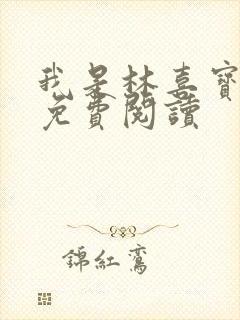 我是林喜寶
免費閱讀
錦紅鸞